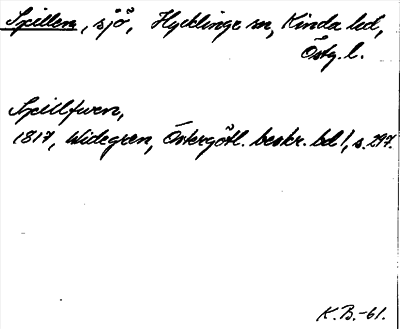 Spillen, sjö, Hycklinge sn, Kinda hd,
Östg. l.
Spillfwen,
1817, Widegren, Östergötl. beskr. bd 1, s. 297.
K.B.-61.